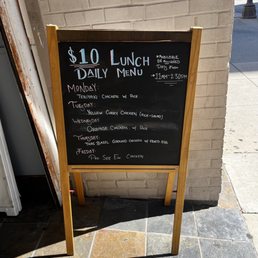 $10 LUNCH
DAILY MENU
*AVAILABLE
11AM-2:30PM
MONDAY:
TERIYAKI CHICKEN W/ RICE
TUESDAY:
YELLOW CURRY CHICKEN
WEDNESDAY:
ORANGE CHICKEN W/ RICE
THURSDAY:
THAI BASIL GROUND CHICKEN W/ FRIED EGG
FRIDAY:
PAD SEE EW CHICKEN